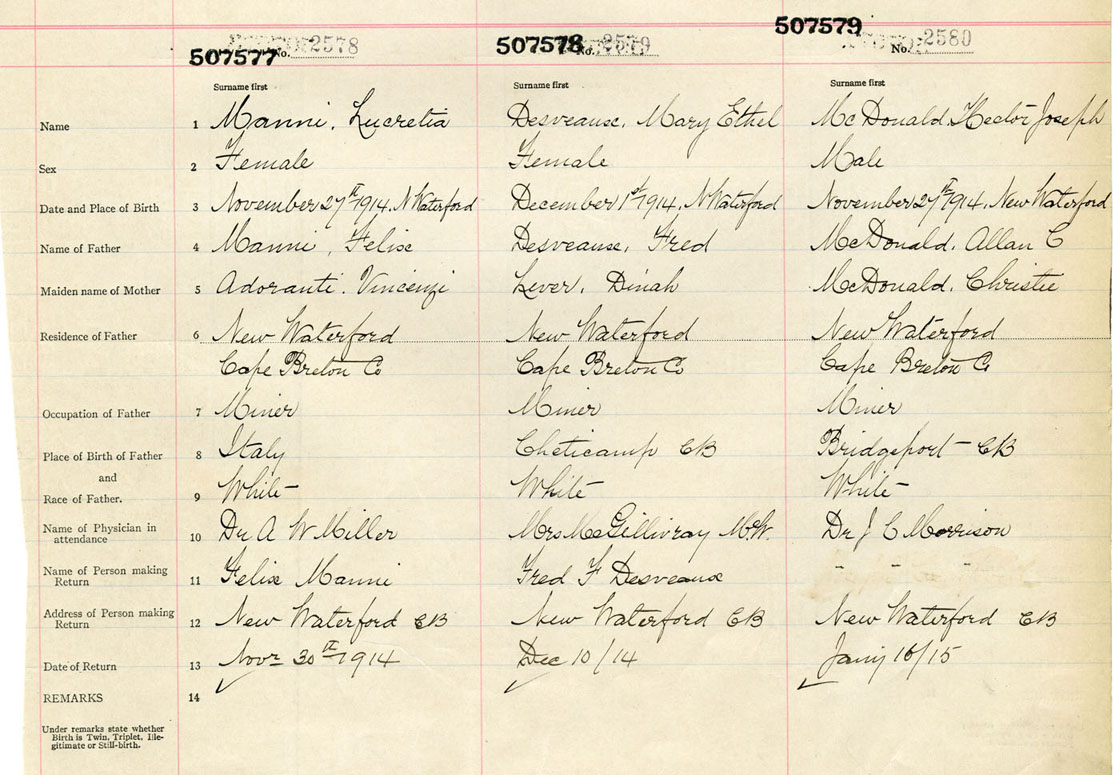 507577 No. 2578 507578 No. 2579 507579 No. 2580
Surname first Surname first Surname first
Name 1 Manni, Lucretia Desveause, Mary Ethel McDonald Hector Joseph
Sex 2 Female Female Male
Date and Place of Birth 3 November 27th 1914, N Waterford December 1st 1914, N Waterford November 27th 1914, New Waterford
Name of Father 4 Manni, Felise Desveause, Fred McDonald, Allan C
Maiden name of Mother 5 Adoranti, Vincenzi Lever, Dinah McDonald, Christie
Residence of Father 6 New Waterford New Waterford New Waterford
Cape Breton Co Cape Breton Co Cape Breton Co
Occupation of Father 7 Miner Miner Miner
Place of Birth of Father 8 Italy Cheticamp CB Bridgeport - CB
and
Race of Father. 9 White White White
Name of Physician in
attendance 10 Dr. A W Miller Mrs McGillivray M.W. Dr J C Morrison
Name of Person making
Return 11 Felise Manni Fred F Desveause " " "
Address of Person making
Return 12 New Waterford CB New Waterford CB New Waterford CB
Date of Return 13 Novr 30th 1914 Dec 10/14 Jany 16/15
REMARKS 14
Under remarks state whether
Birth is Twin, Triplet, Ille-
gitimate or Still-birth.